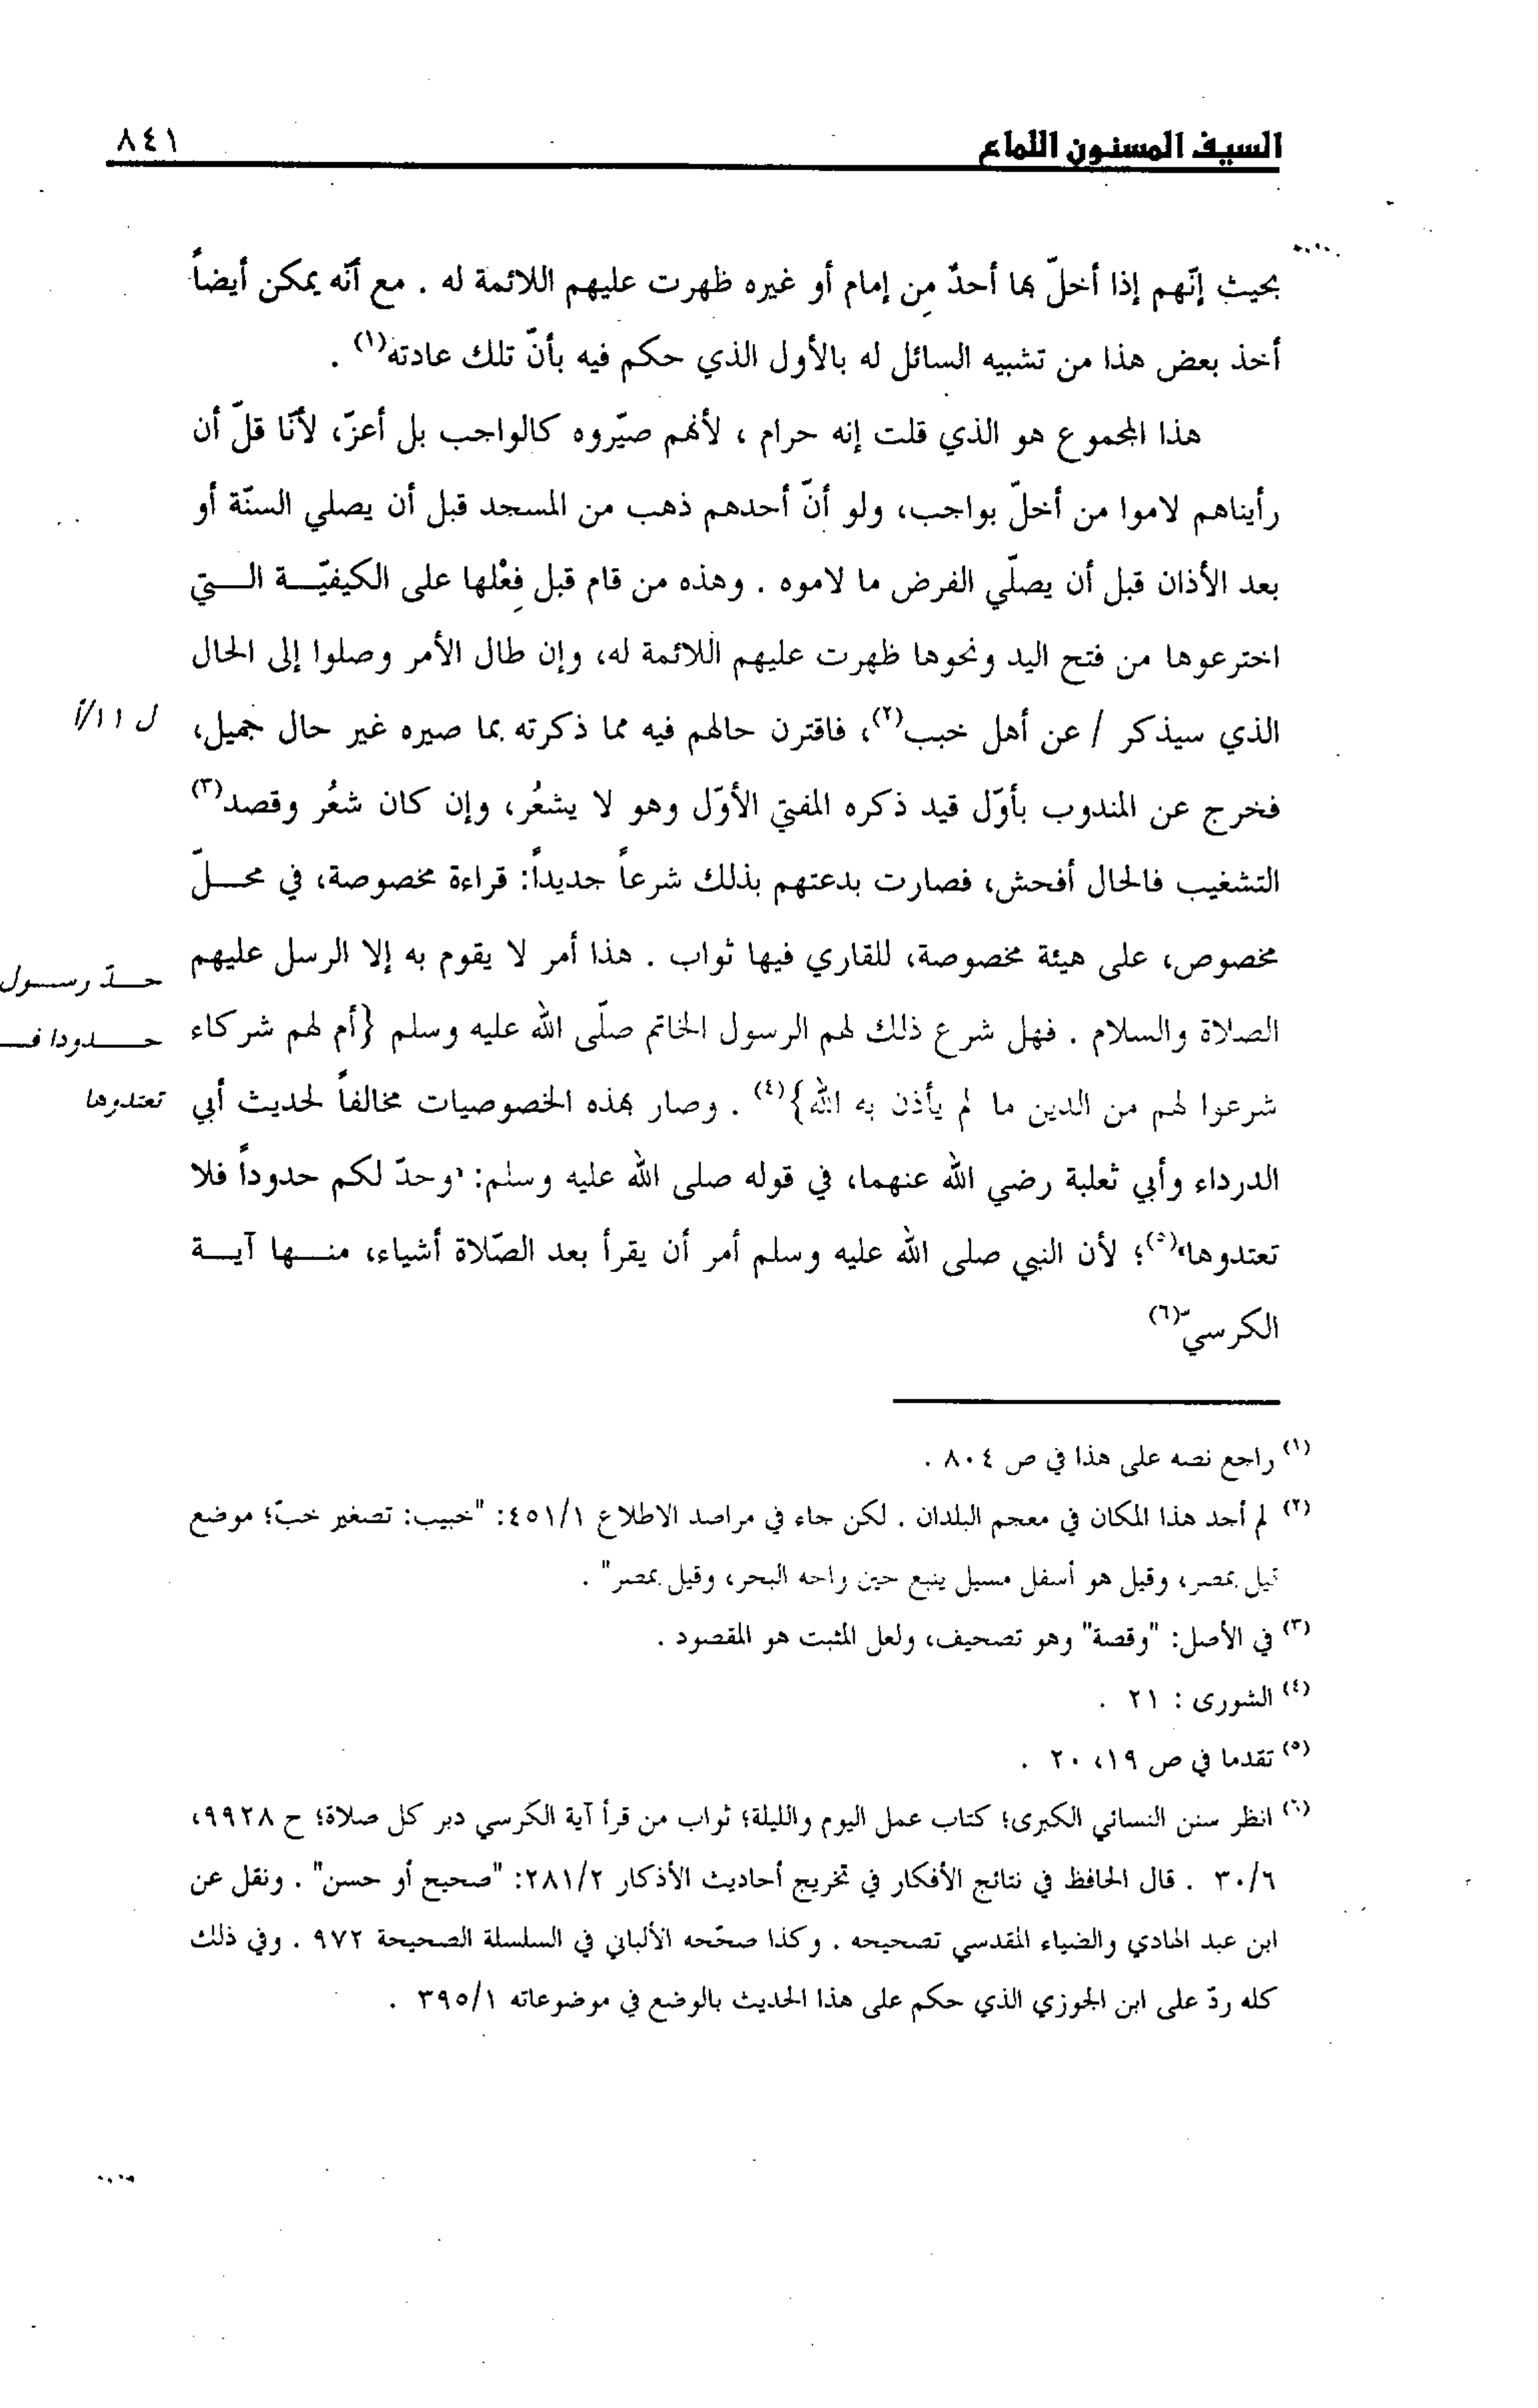 السيف المسنون اللماع
٨٤١
بحيث إنّهم إذا أخلّ بها أحدٌ مِن إمام أو غيره ظهرت عليهم اللائمة له . مع أنّه يمكن أيضاً
أخذ بعض هذا من تشبيه السائل له بالأول الذي حكم فيه بأنّ تلك عادته(١) .
هذا المجموع هو الذي قلت إنه حرام ، لأنهم صيّروه كالواجب بل أعزّ، لأنّا قلّ أن
رأيناهم لاموا من أخلّ بواجب، ولو أنّ أحدهم ذهب من المسجد قبل أن يصلي السنّة أو
بعد الأذان قبل أن يصلّي الفرض ما لاموه . وهذه من قام قبل فِعْلها على الكيفيّــة الــتي
اخترعوها من فتح اليد ونحوها ظهرت عليهم اللائمة له، وإن طال الأمر وصلوا إلى الحال
الذي سيذكر / عن أهل خبب(٢)، فاقترن حالهم فيه مما ذكرته بما صيره غير حال جميل،
ل ١١/أ
فخرج عن المندوب بأوّل قيد ذكره المفتي الأوّل وهو لا يشعُر، وإن كان شعُر وقصد(٣)
التشغيب فالحال أفحش، فصارت بدعتهم بذلك شرعاً جديداً: قراءة مخصوصة، في محــلّ
مخصوص، على هيئة مخصوصة، للقاري فيها ثواب . هذا أمر لا يقوم به إلا الرسل عليهم
حــدّ رســول
الصلاة والسلام . فهل شرع ذلك لهم الرسول الخاتم صلّى الله عليه وسلم {أم لهم شركاء
حــــدودا فــ
شرعوا لهم من الدين ما لم يأذن به الله}(٤) . وصار بهذه الخصوصيات مخالفاً لحديث أبي
تعتدوها
الدرداء وأبي ثعلبة رضي الله عنهما، في قوله صلى الله عليه وسلم: "وحدّ لكم حدوداً فلا
تعتدوها"(٥)؛ لأن النبي صلى الله عليه وسلم أمر أن يقرأ بعد الصّلاة أشياء، منــها آيــة
الكرسيّ(٦)
(١) راجع نصه على هذا في ص ٨٠٤ .
(٢) لم أجد هذا المكان في معجم البلدان . لكن جاء في مراصد الاطلاع ٤٥١/١: "خبيب: تصغير خبّ؛ موضع
قيل بمصر، وقيل هو أسفل مسيل ينبع حين واجه البحر، وقيل بمصر" .
(٣) في الأصل: "وقصة" وهو تصحيف، ولعل المثبت هو المقصود .
(٤) الشورى : ٢١ .
(٥) تقدما في ص ١٩، ٢٠ .
(٦) انظر سنن النسائي الكبرى؛ كتاب عمل اليوم والليلة؛ ثواب من قرأ آية الكرسي دبر كل صلاة؛ ح ٩٩٢٨،
٣٠/٦ . قال الحافظ في نتائج الأفكار في تخريج أحاديث الأذكار ٢٨١/٢: "صحيح أو حسن" . ونقل عن
ابن عبد الهادي والضياء المقدسي تصحيحه . وكذا صحّحه الألباني في السلسلة الصحيحة ٩٧٢ . وفي ذلك
كله ردّ على ابن الجوزي الذي حكم على هذا الحديث بالوضع في موضوعاته ٣٩٥/١ .